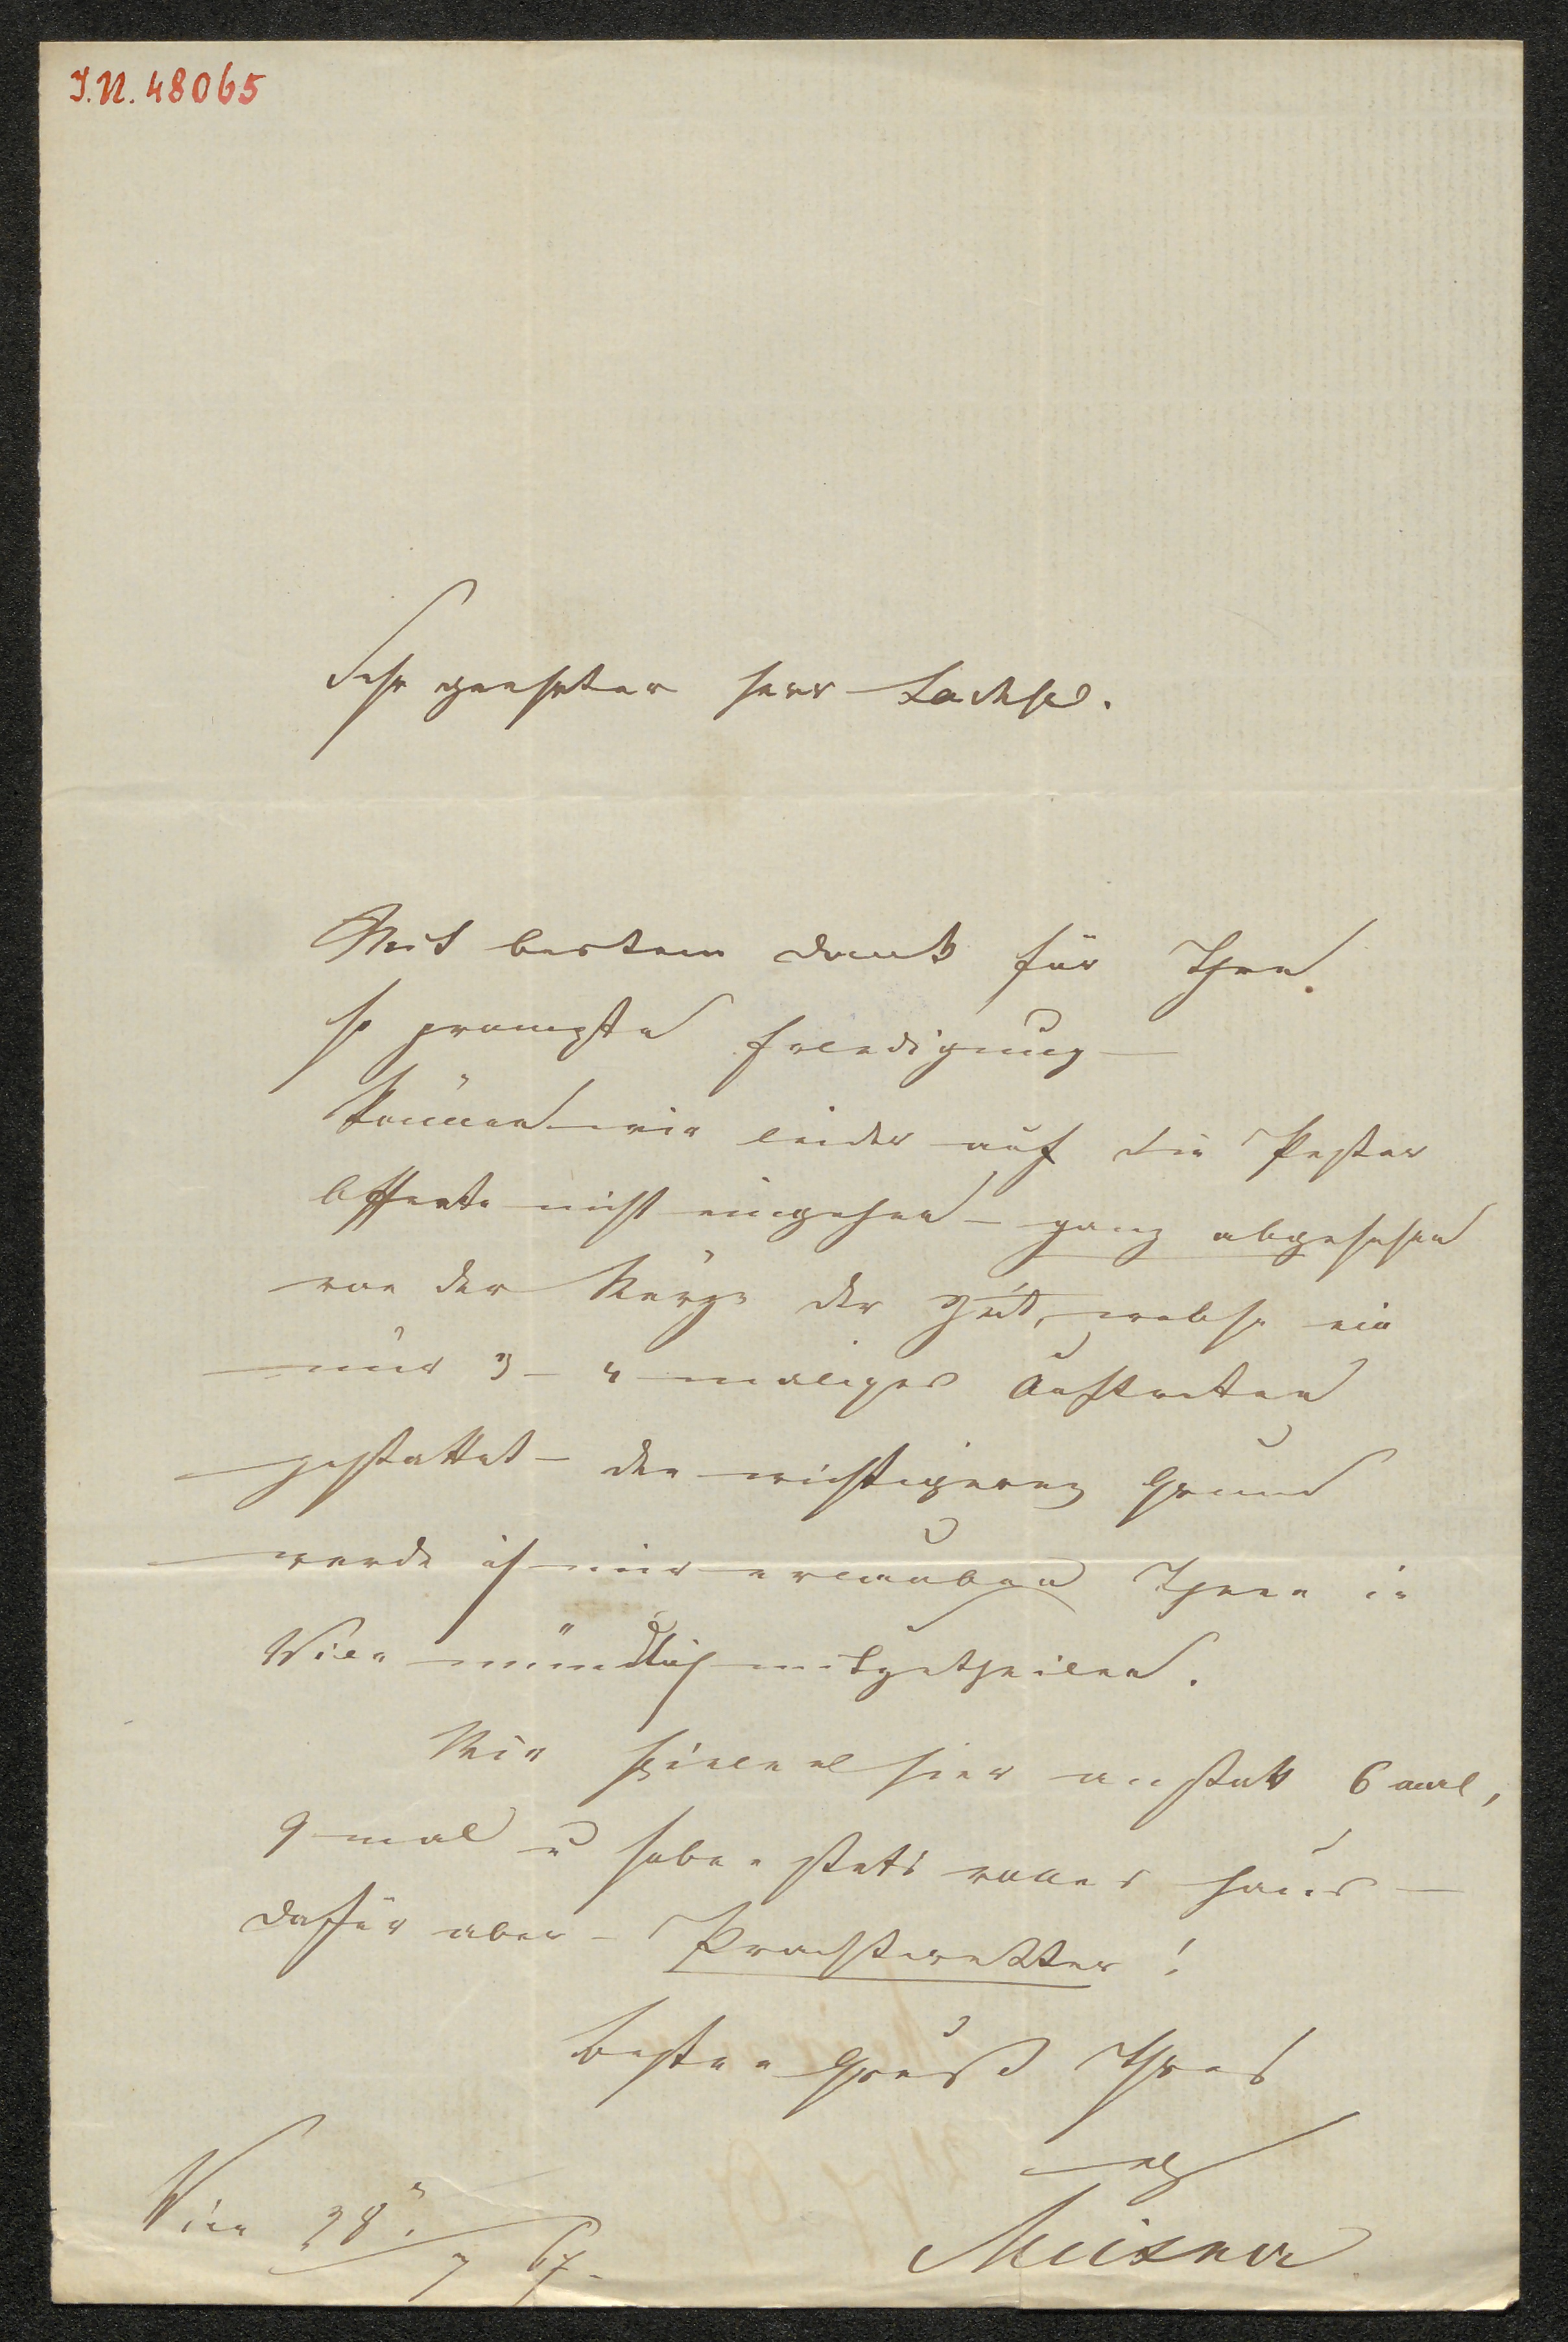 I.N. 48065
Sehr geehrter Herr Sachse.
Mit bestem Dank für Ihre
so prompte Erledigung —
können wir leider auf die Pester
Offerte nicht eingehen — ganz abgesehen
von der Kürze der Zeit, welche ein
nur 3 – 4 maliges Auftreten
gestattet — den wichtigeren Grund
werde ich mir erlauben Ihnen in
Wien mündlich mitzutheilen.
Wir spielen hier anstatt 6 mal,
9 mal u haben stets volles Haus —
dafür aber — Prachtwetter!
Besten Gruß Ihres
Meixner
Wien 28/7 67.